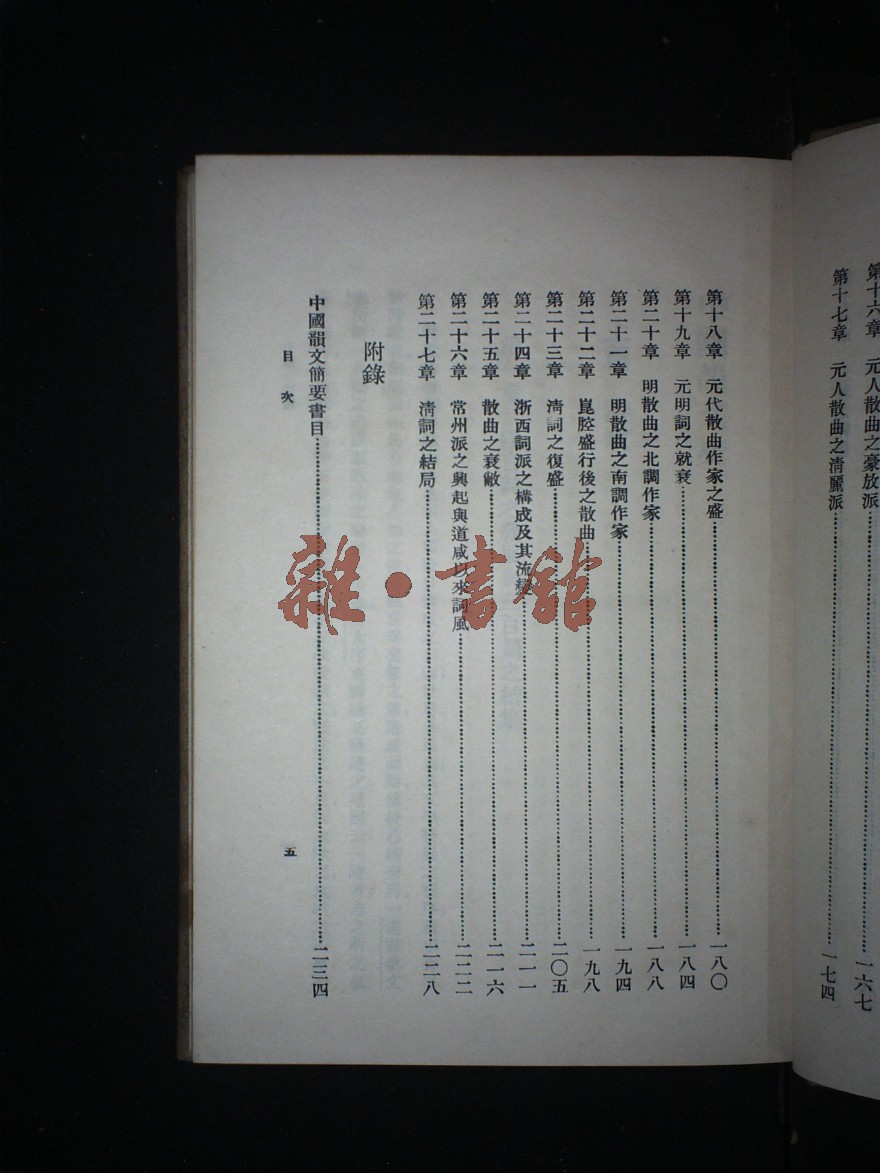 第十六章 元人散曲之豪放派……一六七
第十七章 元人散曲之清麗派……一七四
第十八章 元代散曲作家之盛……一八〇
第十九章 元明詞之就衰……一八四
第二十章 明散曲之北調作家……一八八
第二十一章 明散曲之南調作家……一九四
第二十二章 崑腔盛行後之散曲……一九八
第二十三章 清詞之復盛……二〇五
第二十四章 浙西詞派之構成及其流……二一一
第二十五章 散曲之衰敝……二一六
第二十六章 常州派之興起與道咸以來詞風……二二二
第二十七章 清詞之結局……二二八
附錄
中國韻文簡要書目……二三四
目次
五
雜·書館